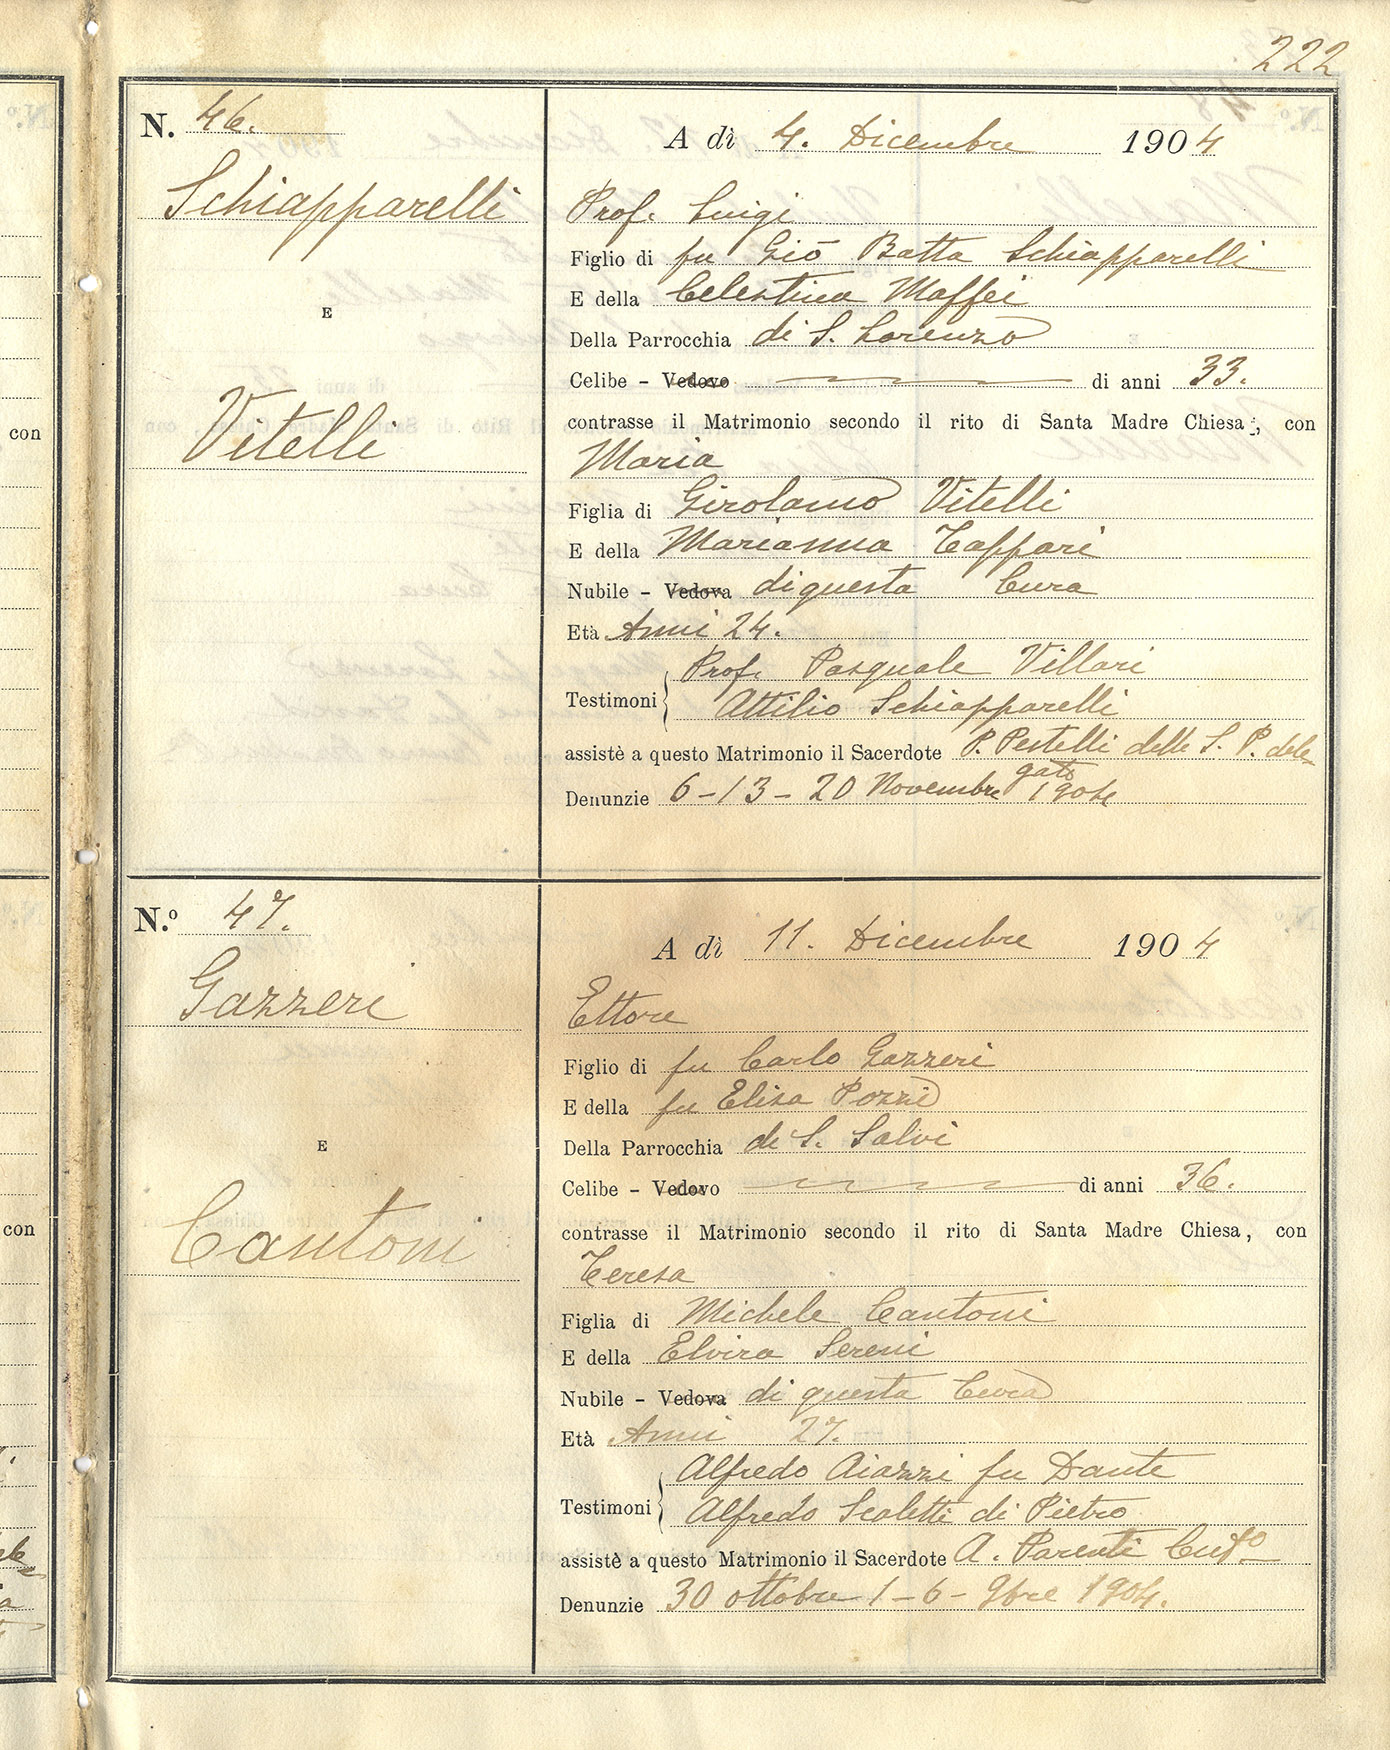 222
N. 46.
Schiapparelli
E
Vitelli
A dì 4. Dicembre 1904
Prof. Luigi
Figlio di fu Gio Batta Schiapparelli
E della Celestina Maffei
Della Parrocchia di S. Lorenzo
Celibe - Vedovo di anni 33.
contrasse il Matrimonio secondo il rito di Santa Madre Chiesa, con
Maria
Figlia di Girolamo Vitelli
E della Marianna Tappari
Nubile - Vedova di questa Cura
Età Anni 24.
Prof. Pasquale Villari
Testimoni
Attilio Schiapparelli
assistè a questo Matrimonio il Sacerdote P. Pestelli delle S. P. dele
gato
Denunzie 6-13-20 Novembre 1904
N.º 47.
Gazzeri
E
Cantoni
A dì 11. Dicembre 1904
Ettore
Figlio di fu Carlo Gazzeri
E della fu Elisa Pozzi
Della Parrocchia di S. Salvi
Celibe - Vedovo di anni 36.
contrasse il Matrimonio secondo il rito di Santa Madre Chiesa, con
Teresa
Figlia di Michele Cantoni
E della Elvira Sereni
Nubile - Vedova di questa Cura
Età Anni 27.
Alfredo Aiazzi fu Dante
Testimoni
Alfredo Scaletti di Pietro
assistè a questo Matrimonio il Sacerdote A. Parenti
Denunzie 30 ottobre 1-6-9bre 1904.
con
con